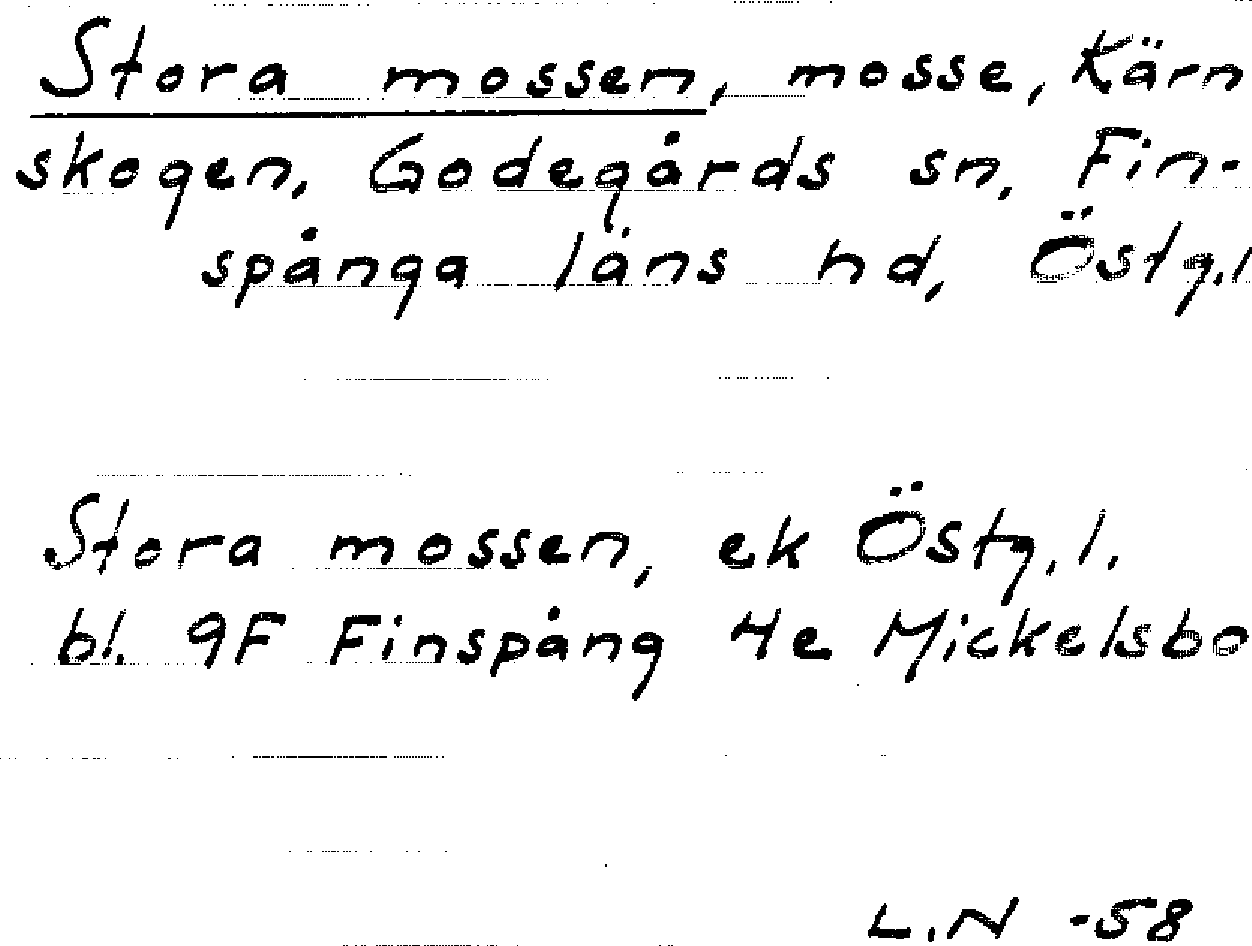 Stora mossen, mosse, Kärn
skogen, Godegårds sn, Fin-
spånga läns hd, Östg.l
Stora mossen, ek Östg.l.
bl. 9F Finspång 4e Mickelsbo
L.N -58